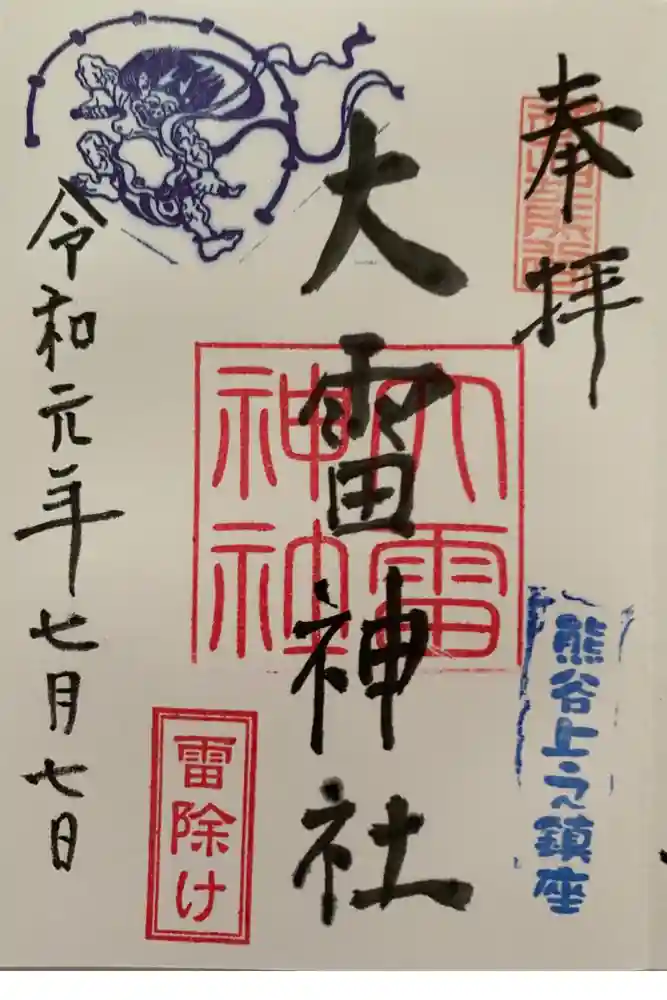 奉拝
大雷神社
大雷神社
熊谷上之鎮座
雷除け
令和元年七月七日